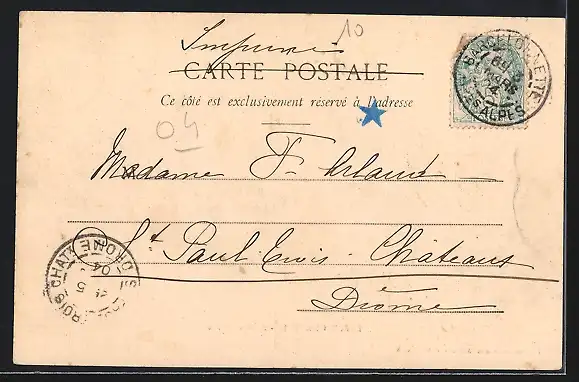 10
Imprimé
CARTE POSTALE
Ce côté est exclusivement réservé à l'adresse
BARCELONNETTE
BSES ALPES
04
Madame F.
St Paul Trois - Châteaux
Drôme
DROME
04
5